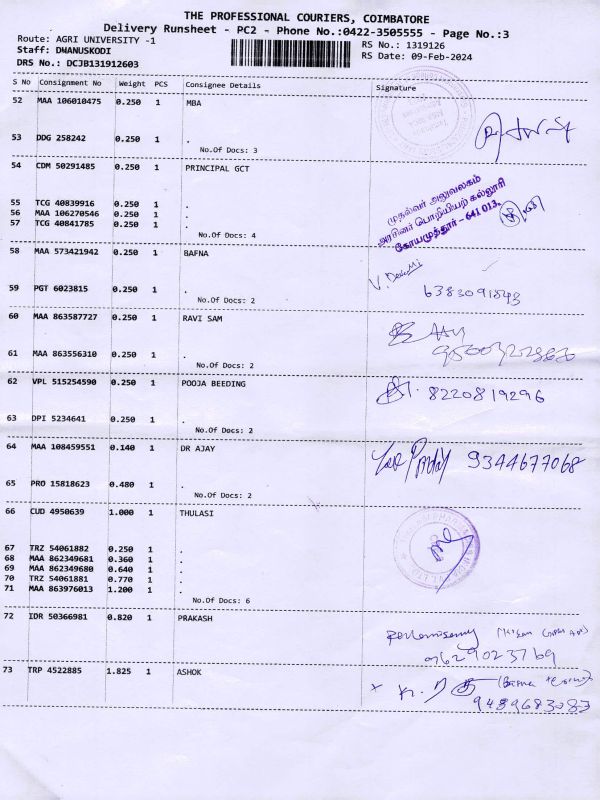 THE PROFESSIONAL COURIERS, COIMBATORE
Delivery Runsheet - PC2 - Phone No.:0422-3505555 - Page No.:3
Route: AGRI UNIVERSITY -1
RS No.: 1319126
Staff: DHANUSKODI
RS Date: 09-Feb-2024
DRS No.: DCJB131912603
S No Consignment No Weight PCS Consignee Details Signature
52 MAA 106010475 0.250 1 MBA
53 DDG 258242 0.250 1 .
No.Of Docs: 3
54 CDM 50291485 0.250 1 PRINCIPAL GCT
முதல்வர் அலுவலகம்
அரசினர் பொறியியற் கல்லூரி
கோயமுத்தூர் - 641 013.
55 TCG 40839916 0.250 1 .
56 MAA 106270546 0.250 1 .
57 TCG 40841785 0.250 1 .
No.Of Docs: 4
58 MAA 573421942 0.250 1 BAFNA
59 PGT 6023815 0.250 1 .
6383091543
No.Of Docs: 2
60 MAA 863587727 0.250 1 RAVI SAM
61 MAA 863556310 0.250 1 .
No.Of Docs: 2
62 VPL 515254590 0.250 1 POOJA BEEDING
8220819296
63 DPI 5234641 0.250 1 .
No.Of Docs: 2
64 MAA 108459551 0.140 1 DR AJAY
9344677068
65 PRO 15818623 0.480 1 .
No.Of Docs: 2
66 CUD 4950639 1.000 1 THULASI
67 TRZ 54061882 0.250 1 .
68 MAA 862349681 0.360 1 .
69 MAA 862349680 0.640 1 .
70 TRZ 54061881 0.770 1 .
71 MAA 863976013 1.200 1 .
No.Of Docs: 6
72 IDR 50366981 0.820 1 PRAKASH
9629023769
73 TRP 4522885 1.825 1 ASHOK
9489683083